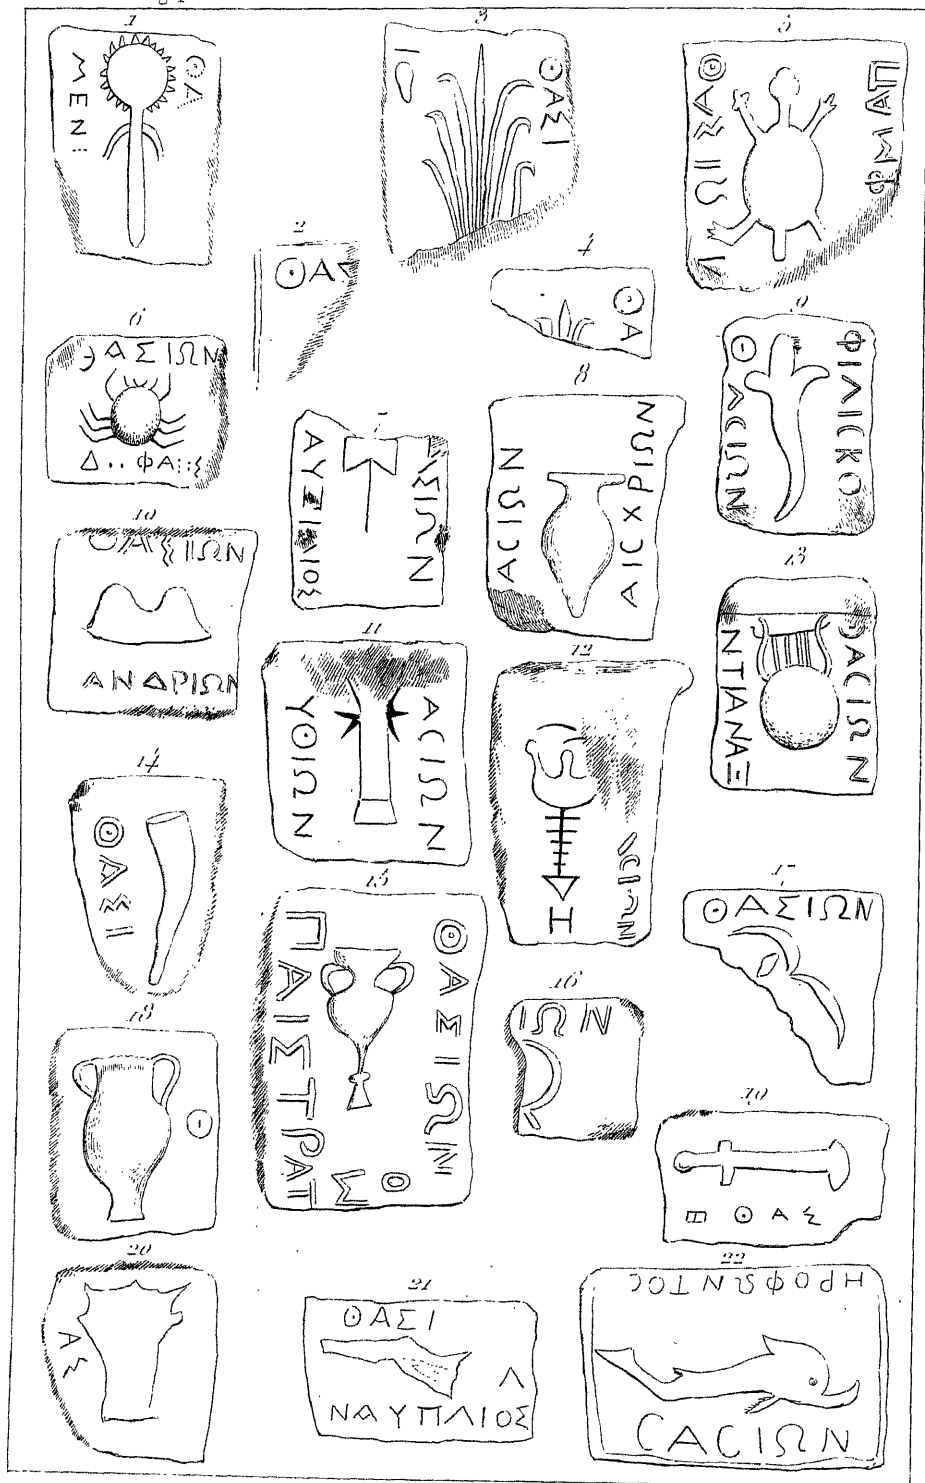 1
ΜΕΝ
ΘΑ
2
ΘΑΣ
3
Ι
ΘΑΣΙ
4
ΘΑ
5
ΘΑΣΙΩΝ
ΠΑΜΦ
6
ΘΑΣΙΩΝ
Δ..ΦΑ
ΑΥΞΙ
ΙΟΣ
ΣΙΩΝ
8
ΑϹΙΩΝ
ΑΙϹΧΡΙΩΝ
9
ΘΑϹΙΩΝ
ΦΙΛΙϹΚΟ
10
ΘΑΣΙΩΝ
ΑΝΔΡΙΩΝ
11
ΥΘΙΩΝ
ΑϹΙΩΝ
12
ϹΙΩΝ
Η
13
ΝΤΙΑΝΑΞ
ΘΑϹΙΩΝ
14
ΘΑΣΙ
15
ΠΑΙΣΤΡΑΤ
ΟΣ
ΘΑΣΙΩΝ
16
ΙΩΝ
17
ΘΑΣΙΩΝ
18
Θ
19
ΘΑΣ
20
ΑΣ
21
ΘΑΣΙ
Λ
ΝΑΥΠΛΙΟΣ
22
ΗΡΟΦΩΝΤΟϹ
ϹΑϹΙΩΝ